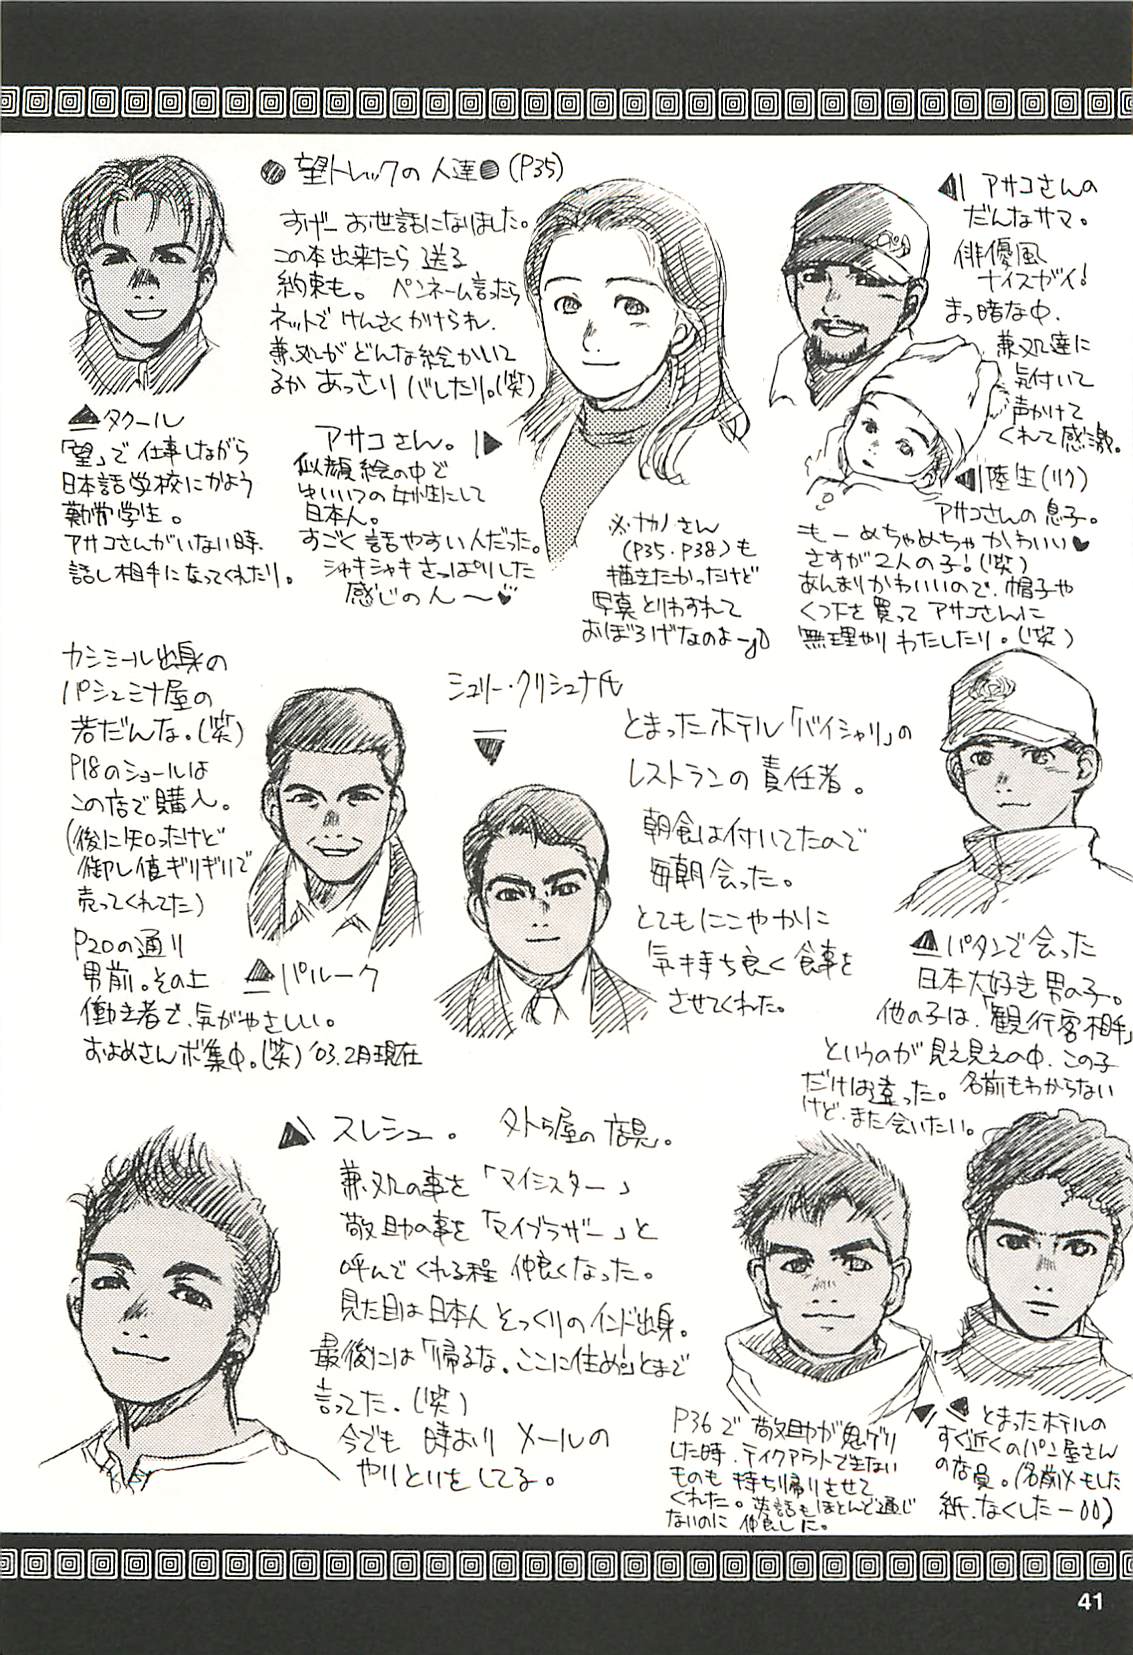 ●望トレックの人達●(P35)
すげーお世話になりました。
この本出来たら送る
約束も。ペンネーム言ったら
ネットでけんさくかけられ、
兼処がどんな絵かいて
るかあっさりバレたり。(笑)
▲タクール
「望」で仕事しながら
日本語学校にかよう
勤労学生。
アサコさんがいない時、
話し相手になってくれたり。
アサコさん。▶
似顔絵の中で
ゆいいつの女性にして
日本人。
すごく話やすい人だった。
シャキシャキさっぱりした
感じの人〜♥
◀アサコさんの
だんなサマ。
俳優風
ナイスガイ!
まっ暗な中、
兼処達に
気付いて
声かけて
くれて感激。
◀陸生(リク)
アサコさんの息子。
もーめちゃめちゃかわいい♥
さすが2人の子!(笑)
あんまりかわいいので、帽子や
くつ下を買ってアサコさんに
無理やりわたしたり。(笑)
※ナカノさん
(P35.P38)も
描きたかったけど
写真とりわすれて
おぼろげなのよー
カシミール出身の
パシュミナ屋の
若だんな。(笑)
P18のショールは
この店で購入。
(後に知ったけど
卸し値ギリギリで
売ってくれてた)
P20の通り
男前。その上
働き者で、気がやさしい。
およめさんボ集中。(笑)'03.2月現在
▲パルーク
シュリー・クリシュナ氏
▼
とまったホテル「バイシャリ」の
レストランの責任者。
朝食は付いてたので
毎朝会った。
とてもにこやかに
気持ち良く食事を
させてくれた。
▲パタンで会った
日本大好き男の子。
他の子は、「観光客相手」
というのが見え見えの中、この子
だけは違った。名前もわからない
けど、また会いたい。
▲スレシュ。 タトゥ屋の店員。
兼処の事を「マイシスター」
敬助の事を「マイブラザー」と
呼んでくれる程仲良くなった。
見た目は日本人そっくりのインド出身。
最後には「帰るな。ここに住め」とまで
言ってた。(笑)
今でも時おりメールの
やりとりをしてる。
P36で敬助が鬼ゲリ
した時、テイクアウトで生ない
ものも持ち帰りさせて
くれた。英語もほとんど通じ
ないのに仲良しに。
▲とまったホテルの
すぐ近くのパン屋さん
の店員。(名前メモした
紙、なくしたー)
41